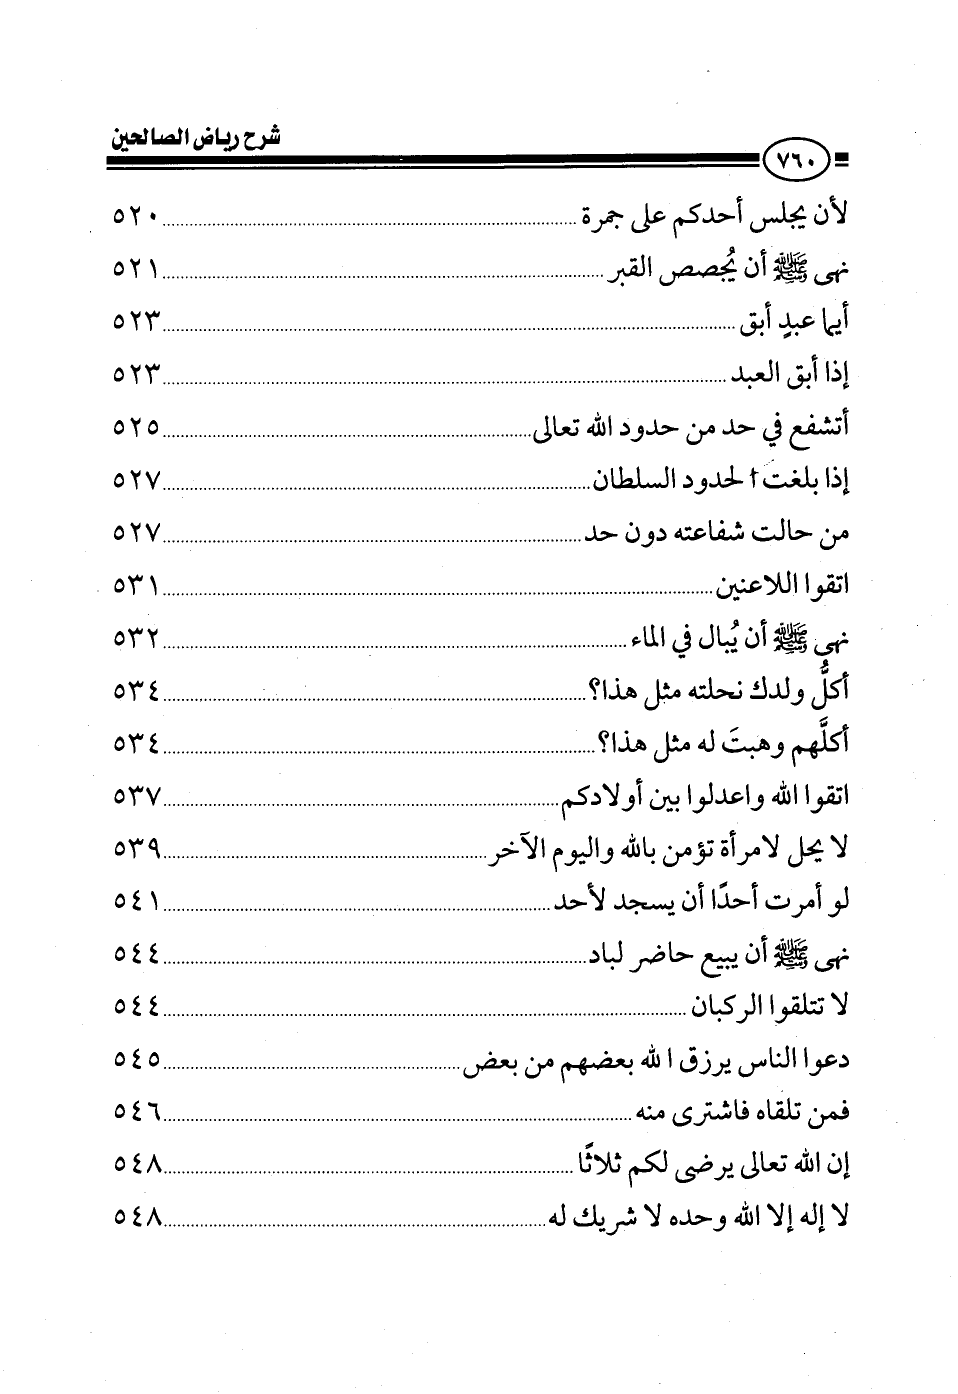 شرح رياض الصالحين
٧٦٠
لأن يجلس أحدكم على جمرة ٥٢٠
نهى ﷺ أن يُجصص القبر ٥٢١
أيما عبدٍ أبق ٥٢٣
إذا أبق العبد ٥٢٣
أتشفع في حد من حدود الله تعالى ٥٢٥
إذا بلغتَ الحدود السلطان ٥٢٧
من حالت شفاعته دون حد ٥٢٧
اتقوا اللاعنين ٥٣١
نهى ﷺ أن يُبال في الماء ٥٣٢
أكلُّ ولدك نحلته مثل هذا؟ ٥٣٤
أكلَّهم وهبتَ له مثل هذا؟ ٥٣٤
اتقوا الله واعدلوا بين أولادكم ٥٣٧
لا يحل لامرأة تؤمن بالله واليوم الآخر ٥٣٩
لو أمرت أحدًا أن يسجد لأحد ٥٤١
نهى ﷺ أن يبيع حاضر لباد ٥٤٤
لا تتلقوا الركبان ٥٤٤
دعوا الناس يرزق الله بعضهم من بعض ٥٤٥
فمن تلقاه فاشترى منه ٥٤٦
إن الله تعالى يرضى لكم ثلاثًا ٥٤٨
لا إله إلا الله وحده لا شريك له ٥٤٨